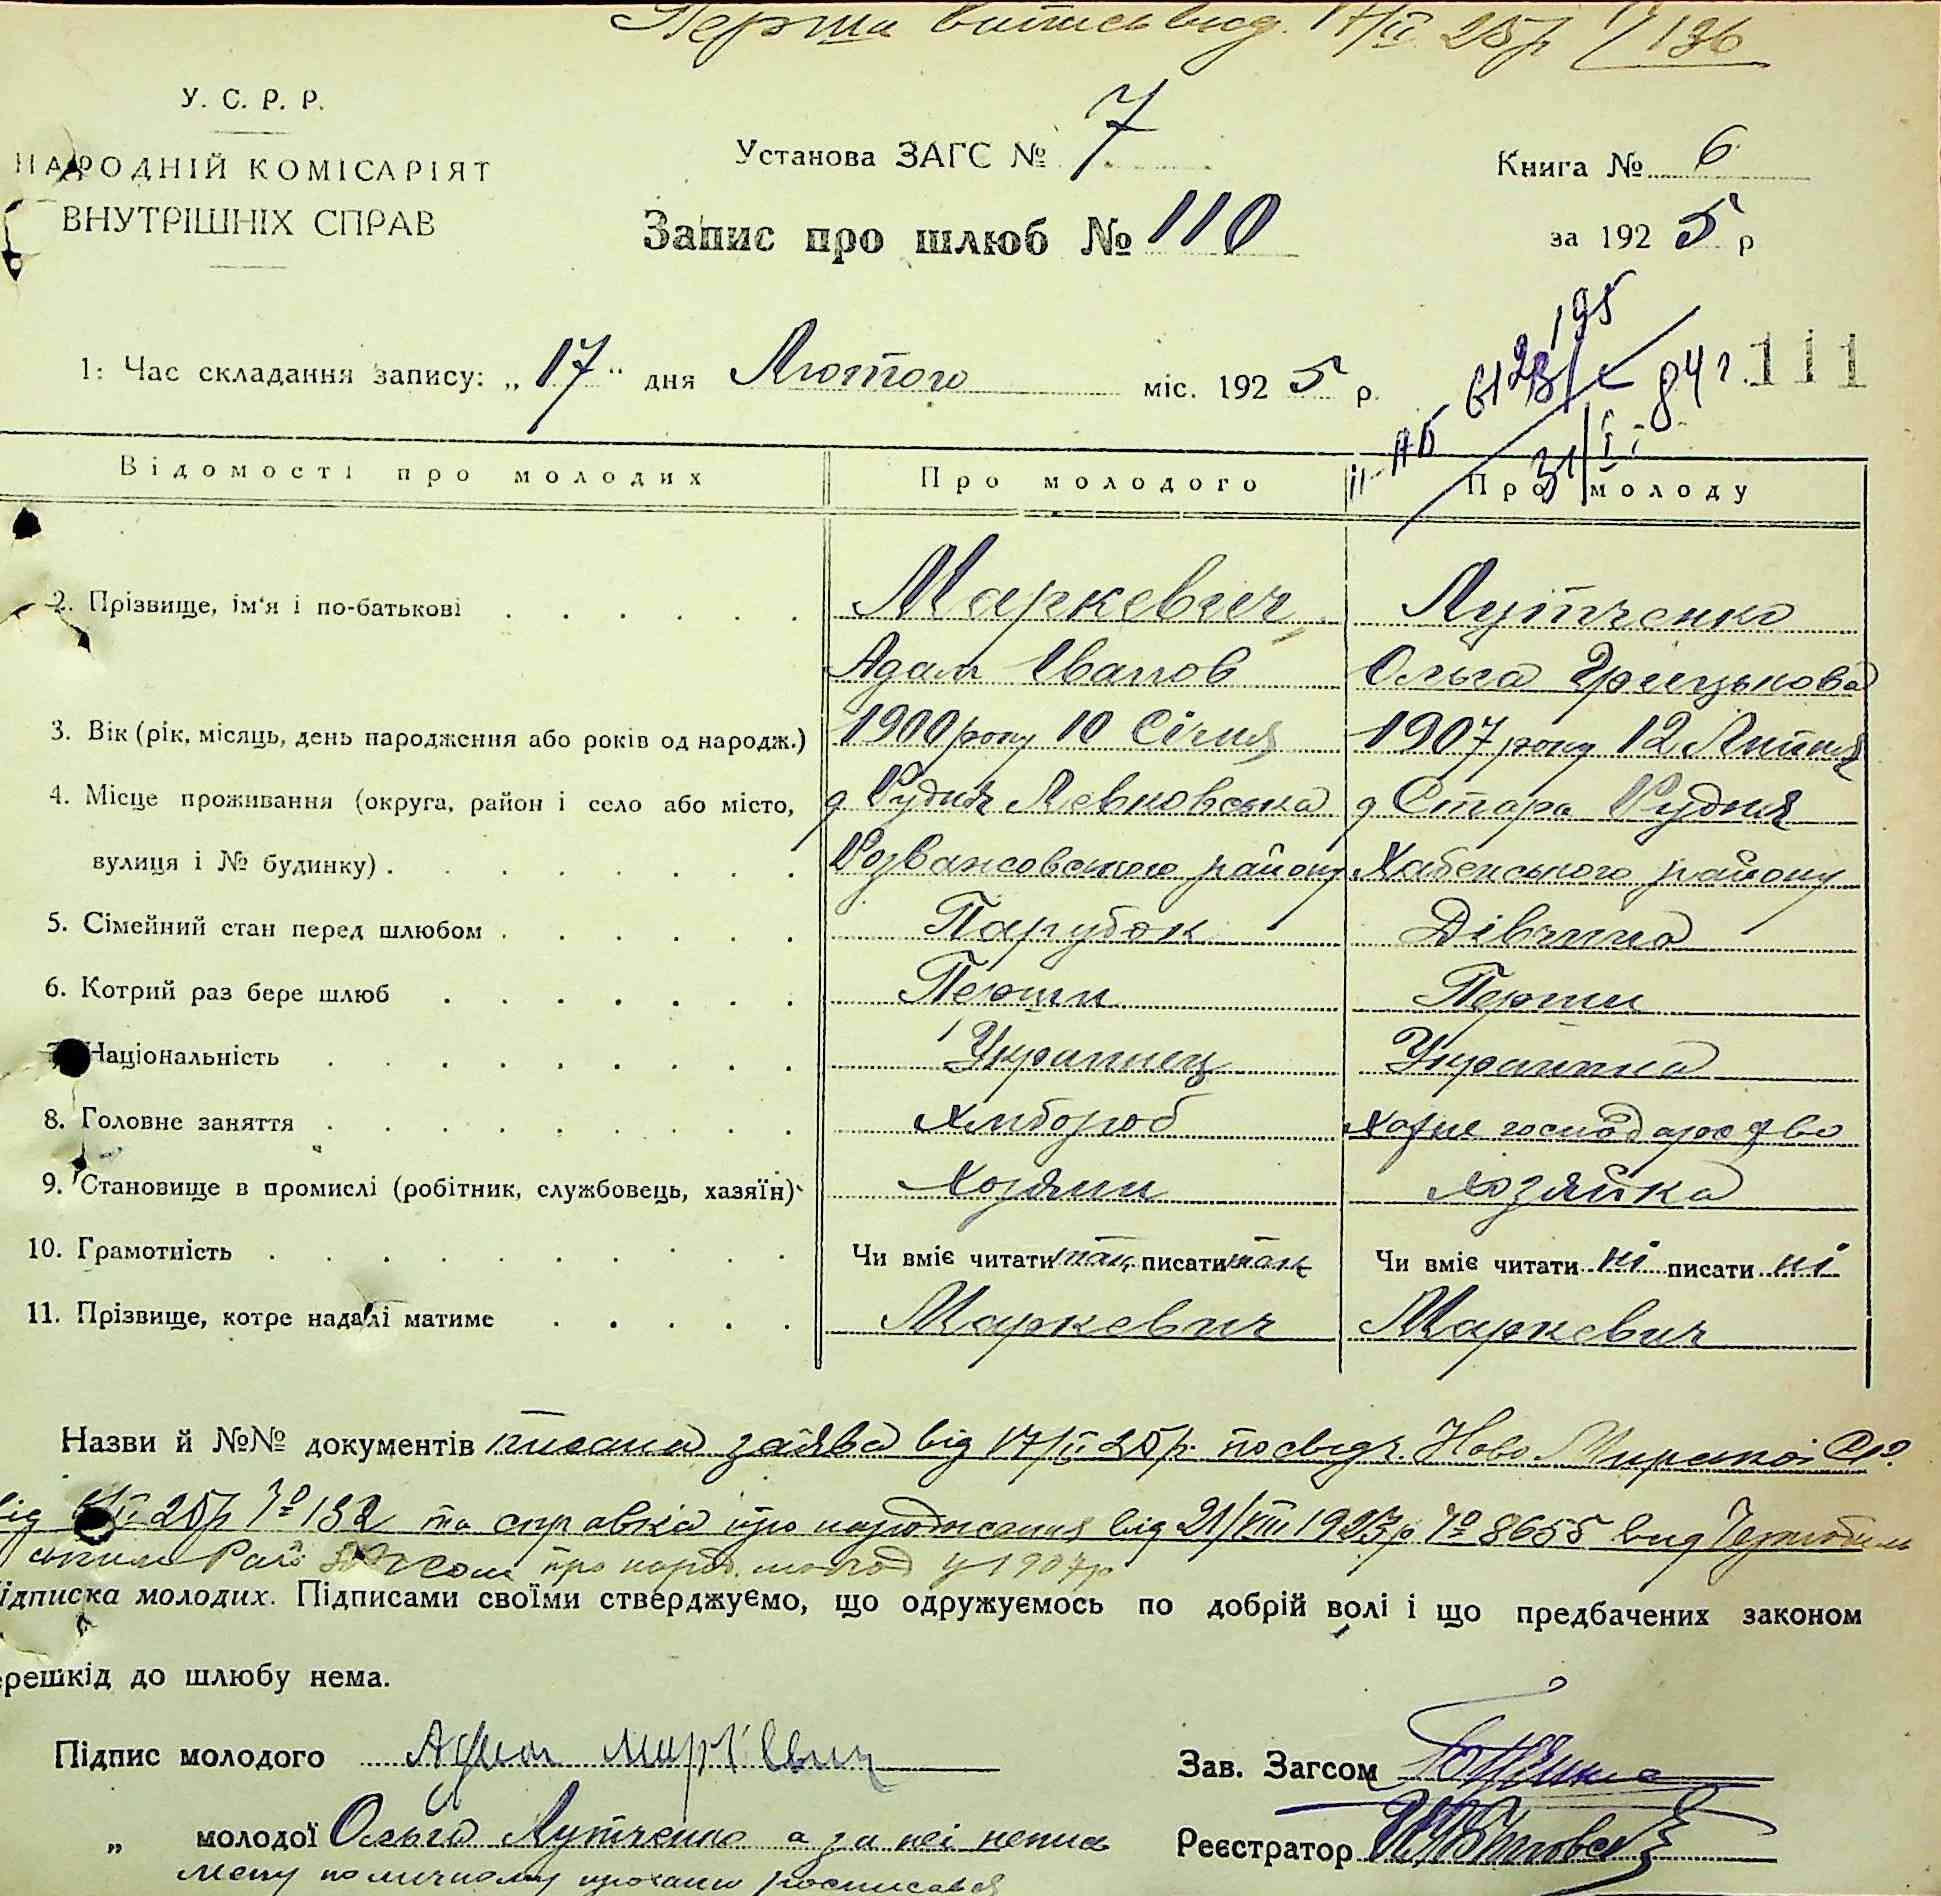 Перша випись вид. 17/II 25 р / 136
У. С. Р. Р.
НАРОДНІЙ КОМІСАРІЯТ
ВНУТРІШНІХ СПРАВ
Установа ЗАГС № 7
Запис про шлюб № 110
Книга № 6
за 1925 р
1: Час складання запису: „17" дня Лютого міс. 1925 р.
111
Відомості про молодих Про молодого Про молоду
2. Прізвище, ім'я і по-батькові Маркевич Лутченко
Адам Іванов Ольга Грицькова
3. Вік (рік, місяць, день народження або років од народж.) 1900 року 10 Січня 1907 року 12 Липня
4. Місце проживання (округа, район і село або місто, д Рудня Левковська д Стара Рудня
вулиця і № будинку). Розважовського району Хабенського району
5. Сімейний стан перед шлюбом Парубок Дівчина
6. Котрий раз бере шлюб Перши Перши
7. Національність Украинец Украинка
8. Головне заняття Хлібороб Хатнє господарство
9. Становище в промислі (робітник, службовець, хазяїн) Хозяин хозяйка
10. Грамотність Чи вміє читати так писати так Чи вміє читати ні писати ні
11. Прізвище, котре надалі матиме Маркевич Маркевич
Назви й №№ документів писана заява від 17/II 25 р. посвідч. Ново
від II 25 р № 132 та справка про народження від 21/VIII 1923 р № 8655 вид Чернобиль
ським Рай про народ. молод у 1907 р
Підписка молодих. Підписами своїми стверджуємо, що одружуємось по добрій волі і що предбачених законом
ерешкід до шлюбу нема.
Підпис молодого Адам Маркевич
Зав. Загсом
„ молодої Ольга Лутченко а за неї непись
мену по личному прохани росписався
Реєстратор